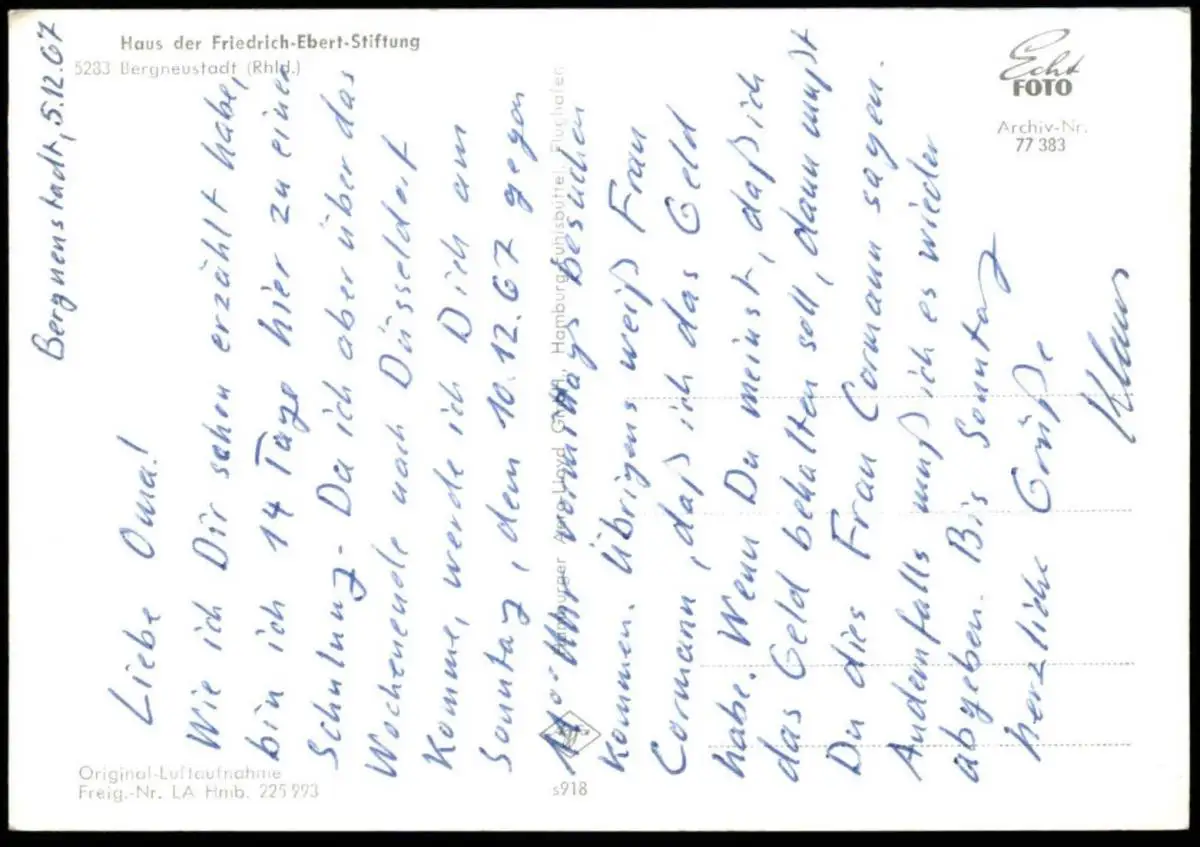 Haus der Friedrich-Ebert-Stiftung
5283 Bergneustadt (Rhld.)
Echt
FOTO
Archiv-Nr.
77 383
Bergneustadt, 5.12.67
Liebe Oma!
Wie ich Dir schon erzählt habe,
bin ich 14 Tage hier zu einer
Schulung. Da ich aber über das
Wochenende nach Düsseldorf
komme, werde ich Dich am
Sonntag, dem 10.12.67 gegen
Uhr vormittags besuchen
kommen. Übrigens weiß Frau
Cormann, daß ich das Geld
habe. Wenn Du meinst, daß ich
das Geld behalten soll, dann mußt
Du dies Frau Cormann sagen.
Andernfalls muß ich es wieder
abgeben. Bis Sonntag
herzliche Grüße
Klaus
Hamburger Aero-Lloyd GmbH., Hamburg-Fuhlsbüttel, Flughafen
Original-Luftaufnahme
Freig.-Nr. LA Hmb. 225 993
s918